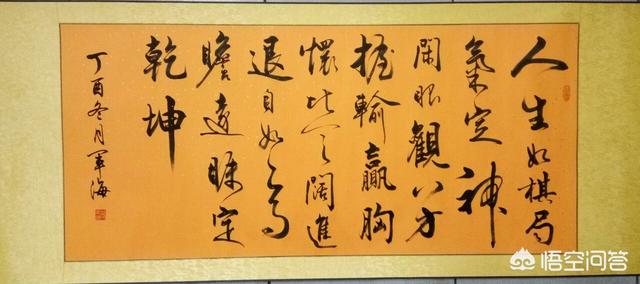 人生如棋局
氣定神
閑眼觀八方
握輸贏胸
懷比天闊進
退自如高
瞻遠眺定
乾坤
丁酉冬月軍海
悟空问答